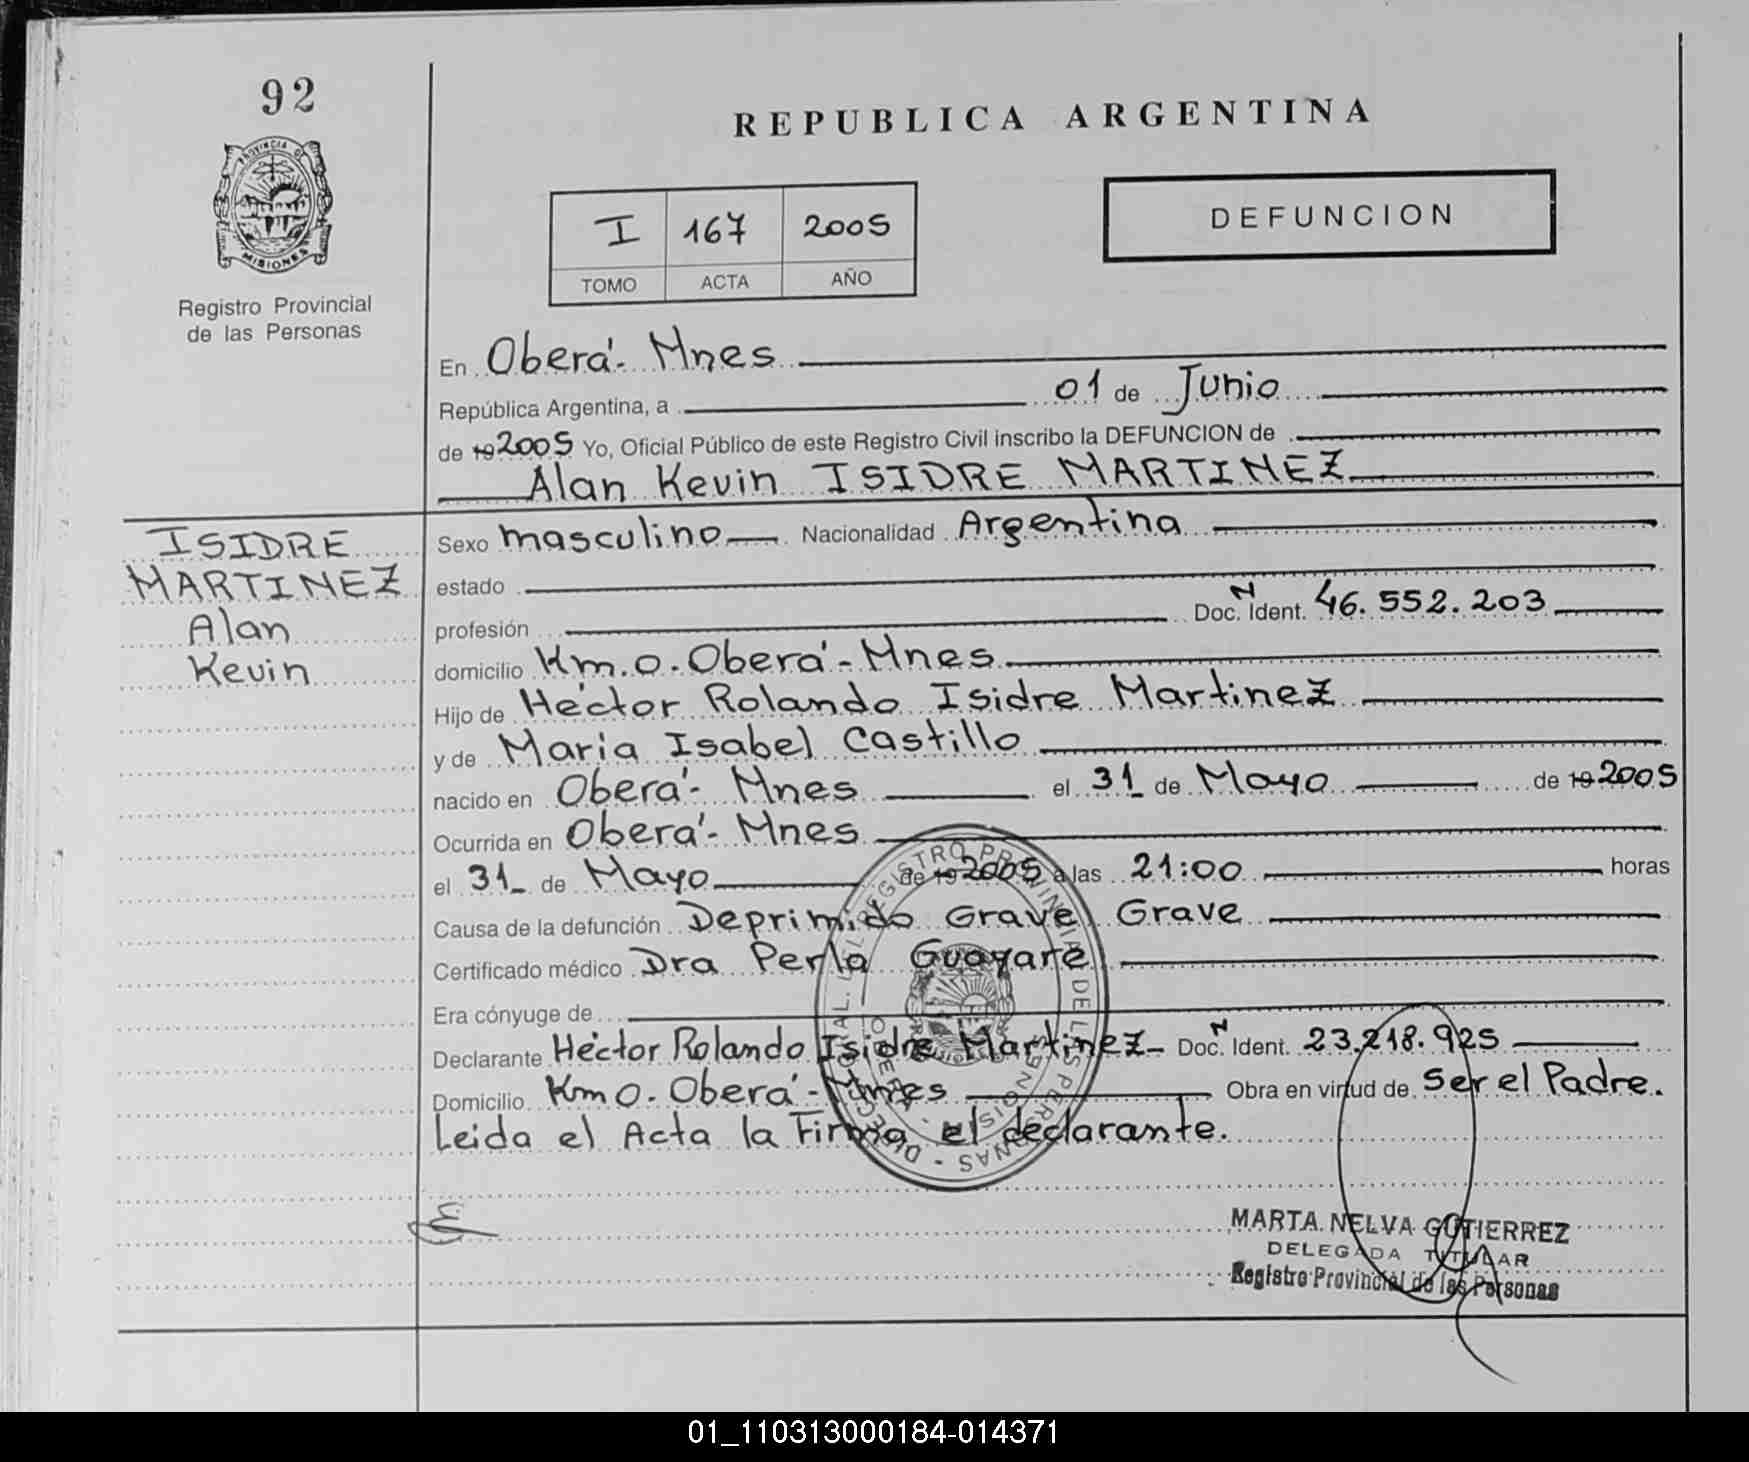 92
PROVINCIA DE
MISIONES
Registro Provincial
de las Personas
REPUBLICA ARGENTINA
I 167 2005
TOMO ACTA AÑO
DEFUNCION
En Oberá - Mnes
República Argentina, a 01 de Junio
de 19 2005 Yo, Oficial Público de este Registro Civil inscribo la DEFUNCION de
Alan Kevin ISIDRE MARTINEZ
ISIDRE
MARTINEZ
Alan
Kevin
Sexo masculino Nacionalidad Argentina
estado
profesión Doc. N Ident. 46.552.203
domicilio Km.0. Oberá - Mnes
Hijo de Héctor Rolando Isidre Martinez
y de Maria Isabel Castillo
nacido en Oberá - Mnes el 31 de Mayo de 19 2005
Ocurrida en Oberá - Mnes
el 31 de Mayo de 19 2005 a las 21:00 horas
Causa de la defunción Deprimido Grave Grave
Certificado médico Dra Perla Guayaré
Era cónyuge de
Declarante Héctor Rolando Isidre Martinez - Doc. N Ident. 23.218.925
Domicilio Km 0. Oberá - Mnes Obra en virtud de Ser el Padre.
Leida el Acta la Firma el declarante.
MARTA NELVA GUTIERREZ
DELEGADA TITULAR
Registro Provincial de las Personas
01_110313000184-014371